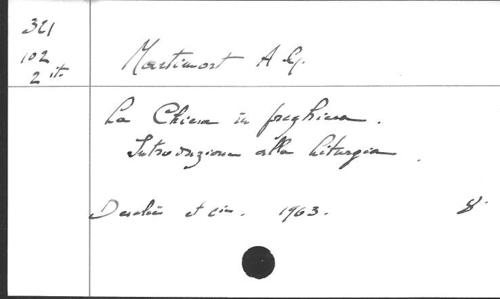 321
102
2 it.
Martimort A. G.
La Chiesa in preghiera.
Introduzione alla Liturgia.
Desclée et cie. 1963. 8°